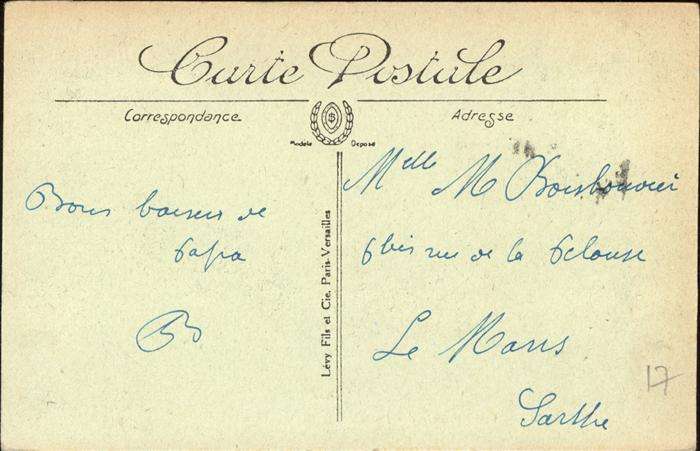 Carte Postale
Correspondance
Adresse
Modèle Déposé
Bons baisers de
Papa
Lévy Fils et Cie, Paris-Versailles
Melle M
6bis rue de la Pelouse
Le Mans
Sarthe
17